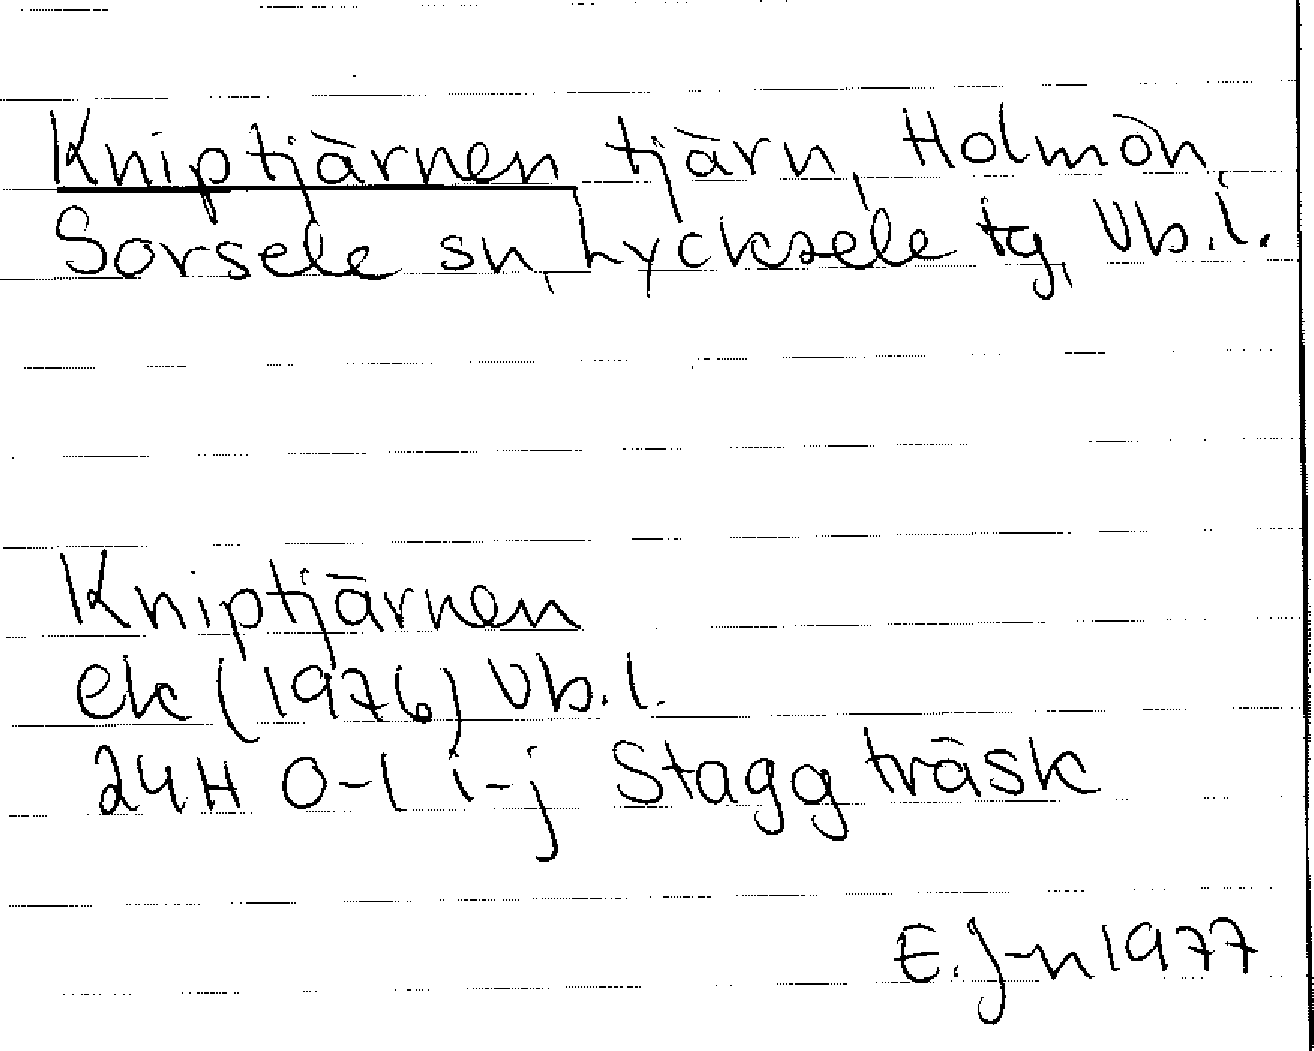 Kniptjärnen tjärn, Holmön,
Sorsele sn, Lycksele tg, Vb.l.
Kniptjärnen
ek (1976) Vb.l.
24H 0-1 i-j Staggträsk
E. J-n 1977